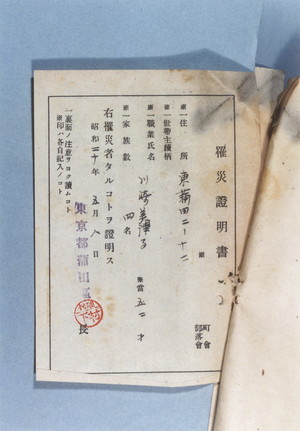 罹災證明書
町會
部落會
※一住所 東蒲田二ノ十二
※一世帶主續柄
※一職業氏名 川崎美津子
當五二才
※一家族數 四名
右罹災者タルコトヲ證明ス
昭和二十年五月八日
東京都蒲田區長
一裏面ノ注意ヲヨク讀ムコト
※印ハ各自記入ノコト